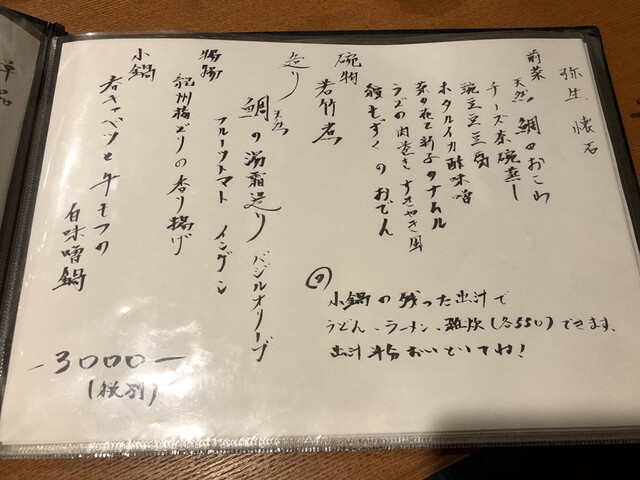 弥生 懐石
前菜 天然 鯛のおこわ
チーズ茶碗蒸し
豌豆豆腐
ホタルイカ酢味噌
菜の花と新子のナムル
うどの肉巻き すきやき風
椀物 若竹煮
もずくのおでん
造り 天然 鯛の湯霜造り バジルオリーブ
フルーツトマト インゲン
紀州梅どりの香り揚げ
小鍋 春キャベツと牛モツの
白味噌鍋
-3000-
(税別)
小鍋の残った出汁で
うどん、ラーメン、雑炊(各550)できます。
出汁半分おいといてね!
単品